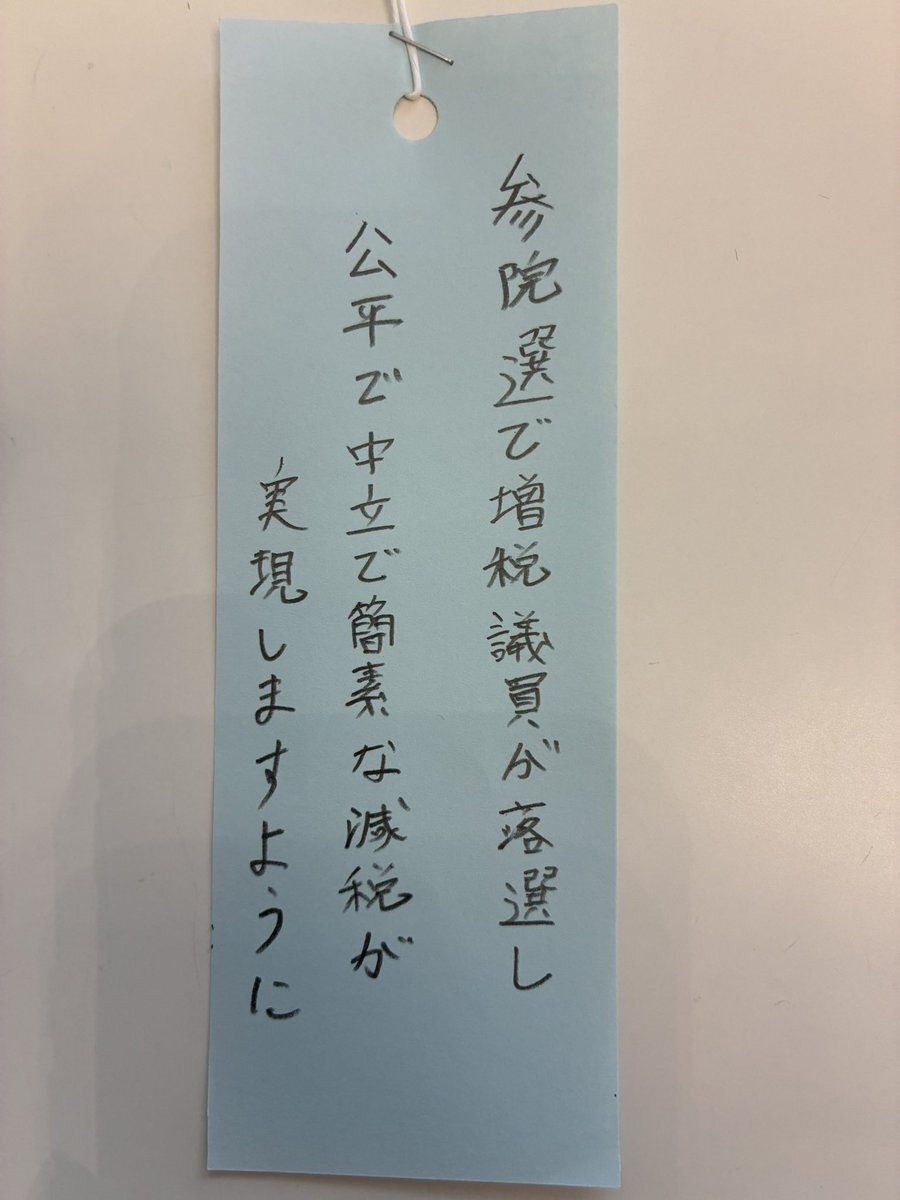 参院選で増税議員が落選し
公平で中立で簡素な減税が
実現しますように